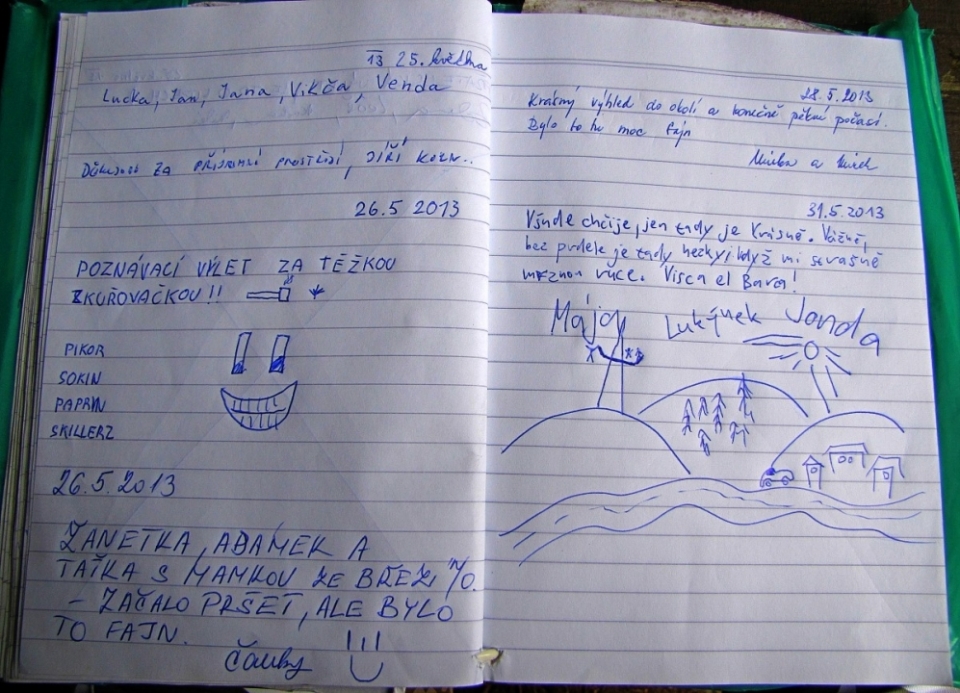 13 25. května
Lucka, Jan, Jana, Vikča, Venda
Děkujeme za
26.5 2013
POZNÁVACÍ VÝLET ZA TĚŽKOU
ZKUŘOVAČKOU!!
PIKOR
SOKIN
PAPRIN
SKILLERZ
26.5.2013
ŽANETKA, ADÁMEK A
TAŤKA S MAMKOU ZE BŘEZI N/O.
- ZAČALO PRŠET, ALE BYLO
TO FAJN.
Čauky
28.5.2013
Krásný výhled do okolí a konečně pěkné počasí.
Bylo to tu moc fajn
a
31.5.2013
Všude chčije, jen tady je krásně. Vážně,
bez prdele je tady hezky, když mi strašně
mrznou ruce. Visca el Barca!
Mája Lukýnek Jonda